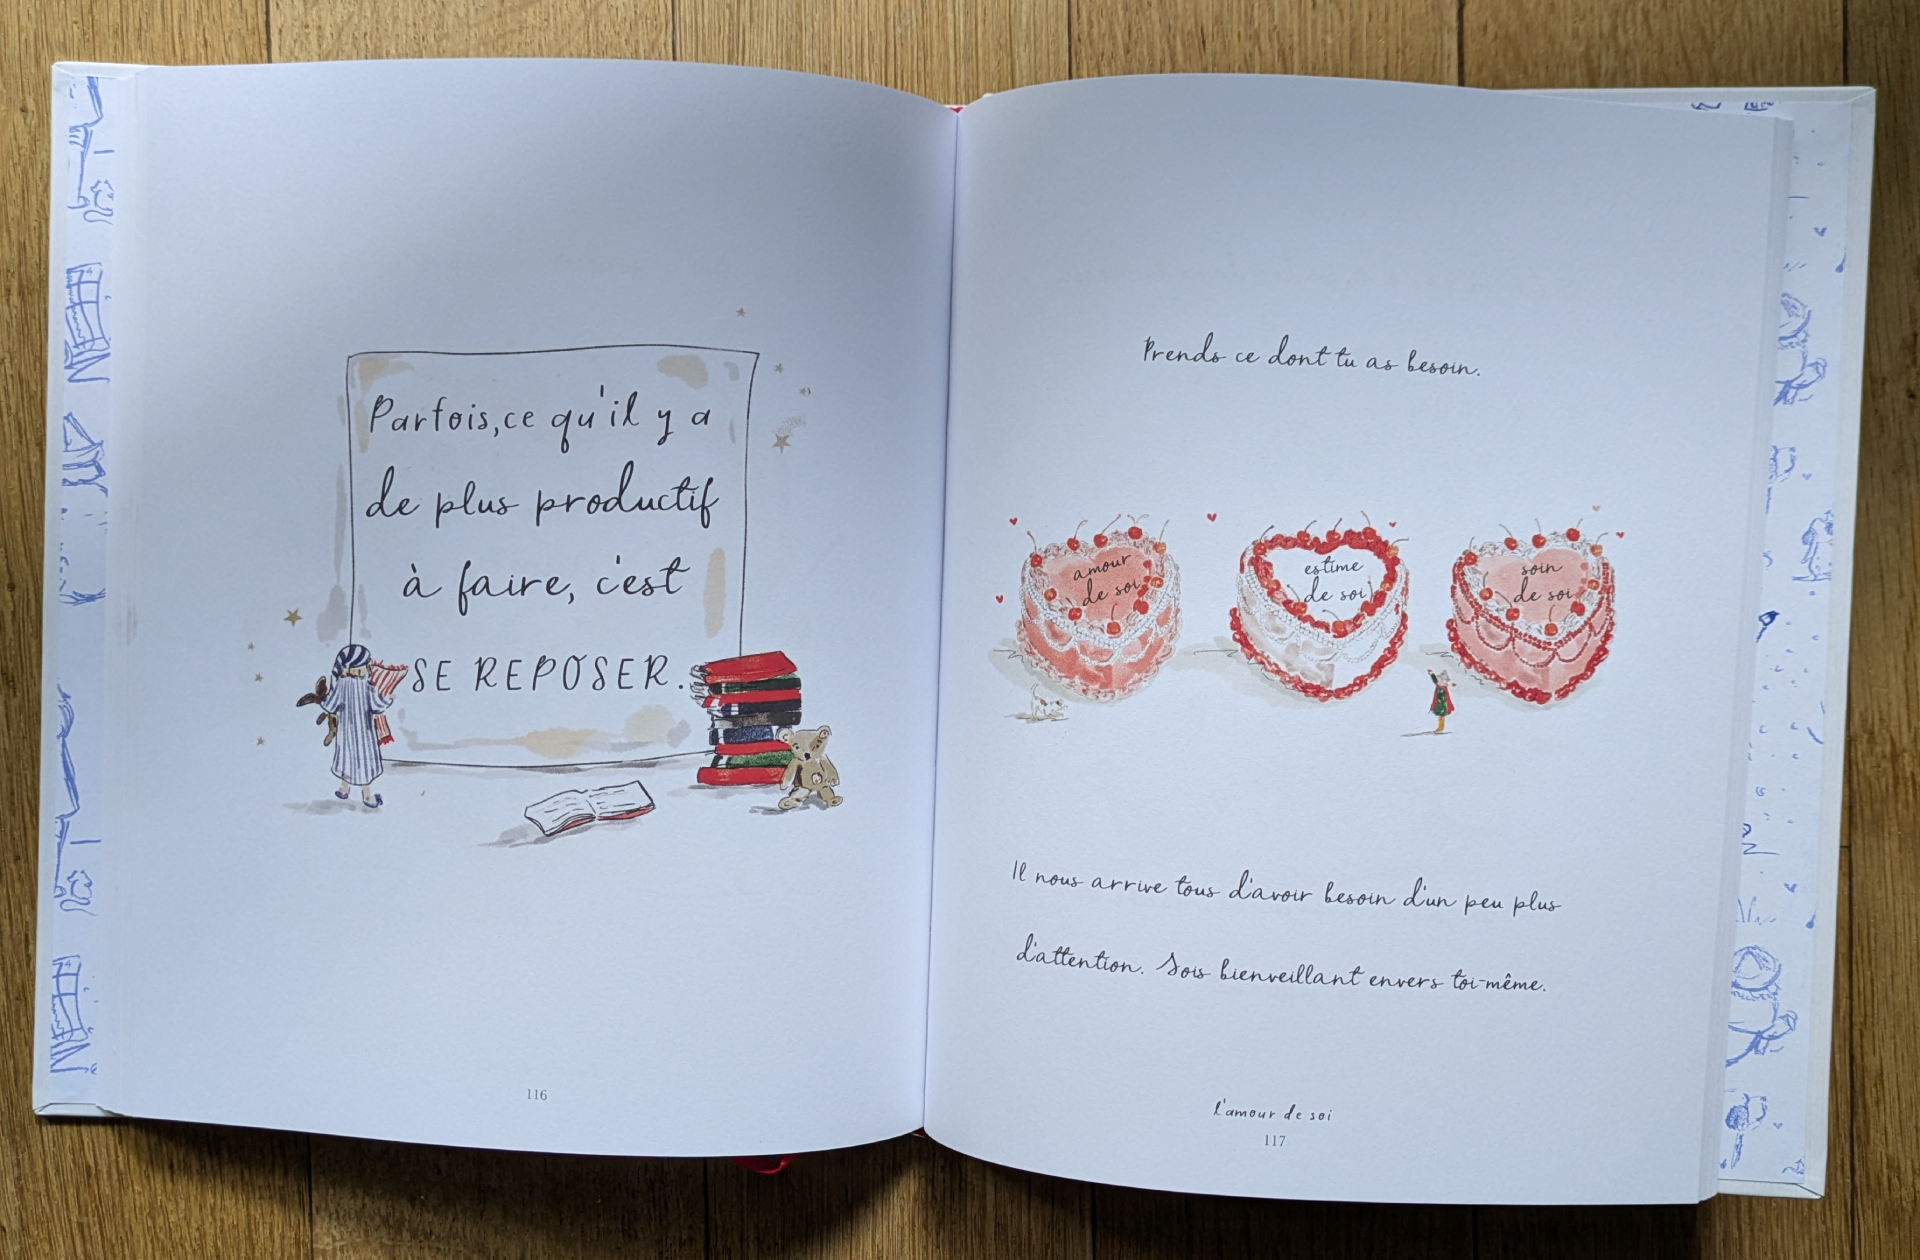 Parfois, ce qu'il y a
de plus productif
à faire, c'est
SE REPOSER.
116
Prends ce dont tu as besoin.
amour
de soi
estime
de soi
soin
de soi
Il nous arrive tous d'avoir besoin d'un peu plus
d'attention. Sois bienveillant envers toi-même.
l'amour de soi
117